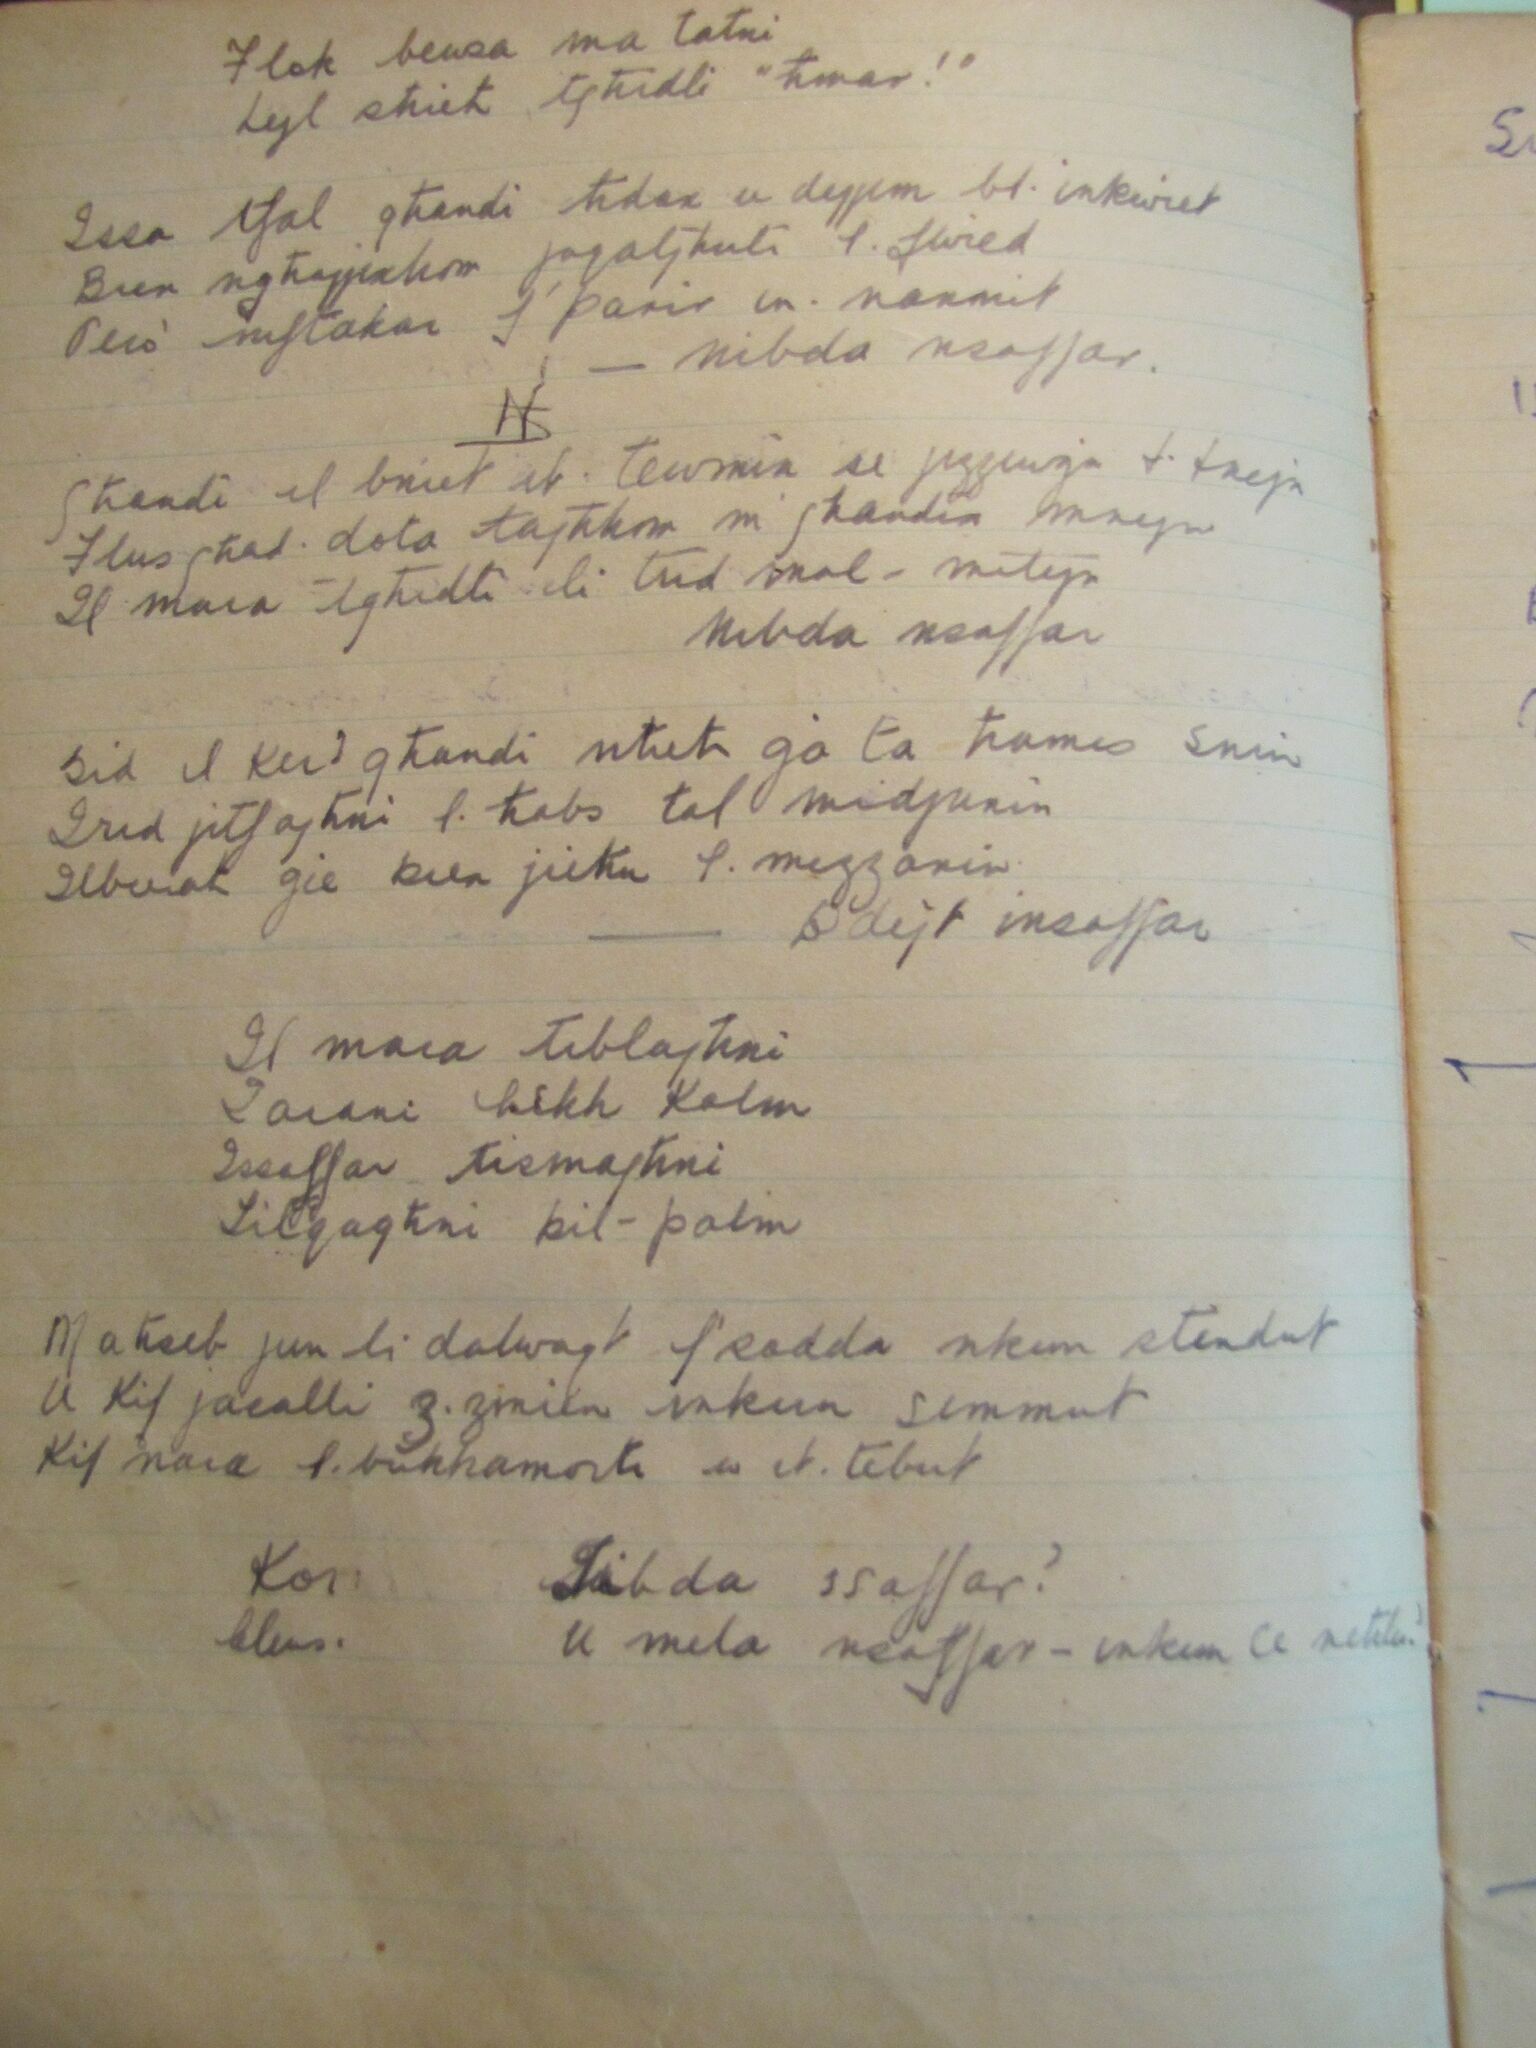 Flok bewsa ma tatni
Lejl sħieħ tgħidli "ħmar!"
Issa tfal għandi ħdax u dejjem bl. inkwiet
Biex ngħajjixhom jaqaltħuli l.
Pero niftakar f' parir in. nanniet
— Nibda nsaffar.
Għandi il bniet it. tewmin se jizzewgu t. tnejn
Flus għad. dota tagħhom m' għandix mnejn
Il mara tgħidli li trid mal- mitejn
Nibda nsaffar
Sid il kera għandi nħeħ ġa ta ħames snin
Irid jitfagħni l. ħabs tal midjunin
Ilbieraħ ġie biex jieħu l. mezzanin
— Bdejt insaffar
Il mara tiblagħni
Tarani hekk kalm
Issaffar tismagħni
Tilqagħni bil- palm
Maħseb jum li dalwaqt f'sodda nkun stendut
U Kif jasalli ż. żmien inkun semmut
Kif nara l. bukkamorti u it. tebut
Kor: Tibda ssaffar?
U mela nsaffar — inkun se